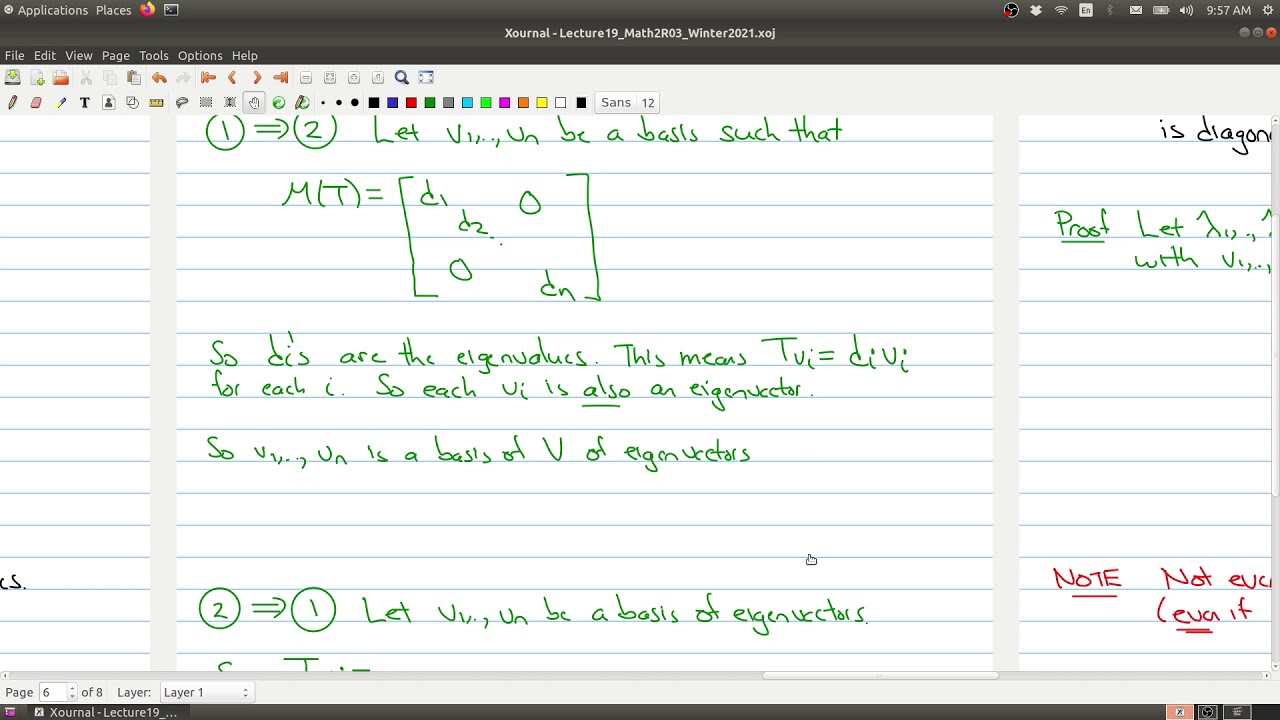 Applications Places En 9:57 AM
Xournal - Lecture19_Math2R03_Winter2021.xoj
File Edit View Page Tools Options Help
T Sans 12
① ⟹ ② Let v1,..,vn be a basis such that
M(T) = [ d1 0
d2
0 dn ]
So di's are the eigenvalues. This means Tvi = divi
for each i. So each vi is also an eigenvector.
So v1,..,vn is a basis of V of eigenvectors
② ⟹ ① Let v1,..,vn be a basis of eigenvectors.
cs.
is diagon
Proof Let λ1,..,λ
with v1,..,
NOTE Not eve
(even if
Page 6 of 8 Layer: Layer 1
Xournal - Lecture19_...